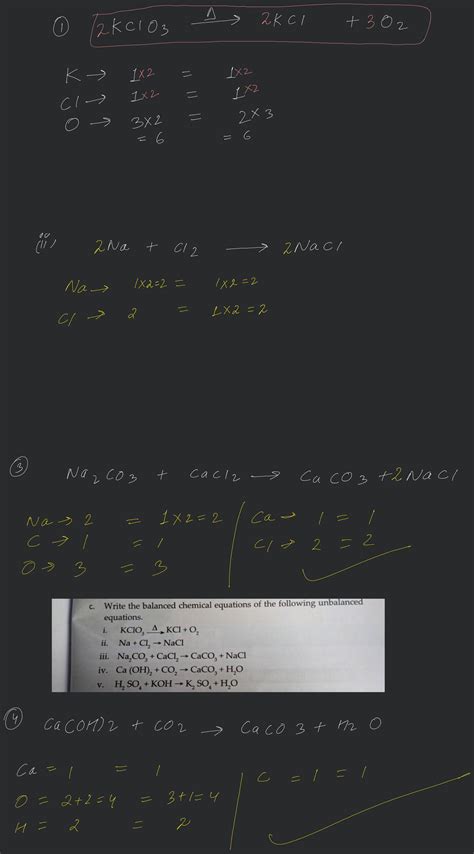 ① 2KClO3 —Δ→ 2KCl + 3O2
K → 1×2 = 1×2
Cl → 1×2 = 1×2
O → 3×2 = 2×3
= 6 = 6
(ii) 2Na + Cl2 → 2NaCl
Na → 1×2=2 = 1×2=2
Cl → 2 = 1×2=2
③ Na2CO3 + CaCl2 → CaCO3 + 2NaCl
Na → 2 = 1×2=2
C → 1 = 1
O → 3 = 3
Ca → 1 = 1
Cl → 2 = 2
c. Write the balanced chemical equations of the following unbalanced
equations.
i. KClO3 —Δ→ KCl + O2
ii. Na + Cl2 → NaCl
iii. Na2CO3 + CaCl2 → CaCO3 + NaCl
iv. Ca (OH)2 + CO2 → CaCO3 + H2O
v. H2 SO4 + KOH → K2 SO4 + H2O
④ Ca(OH)2 + CO2 → CaCO3 + H2O
Ca = 1 = 1
O = 2+2=4 = 3+1=4
H = 2 = 2
C = 1 = 1